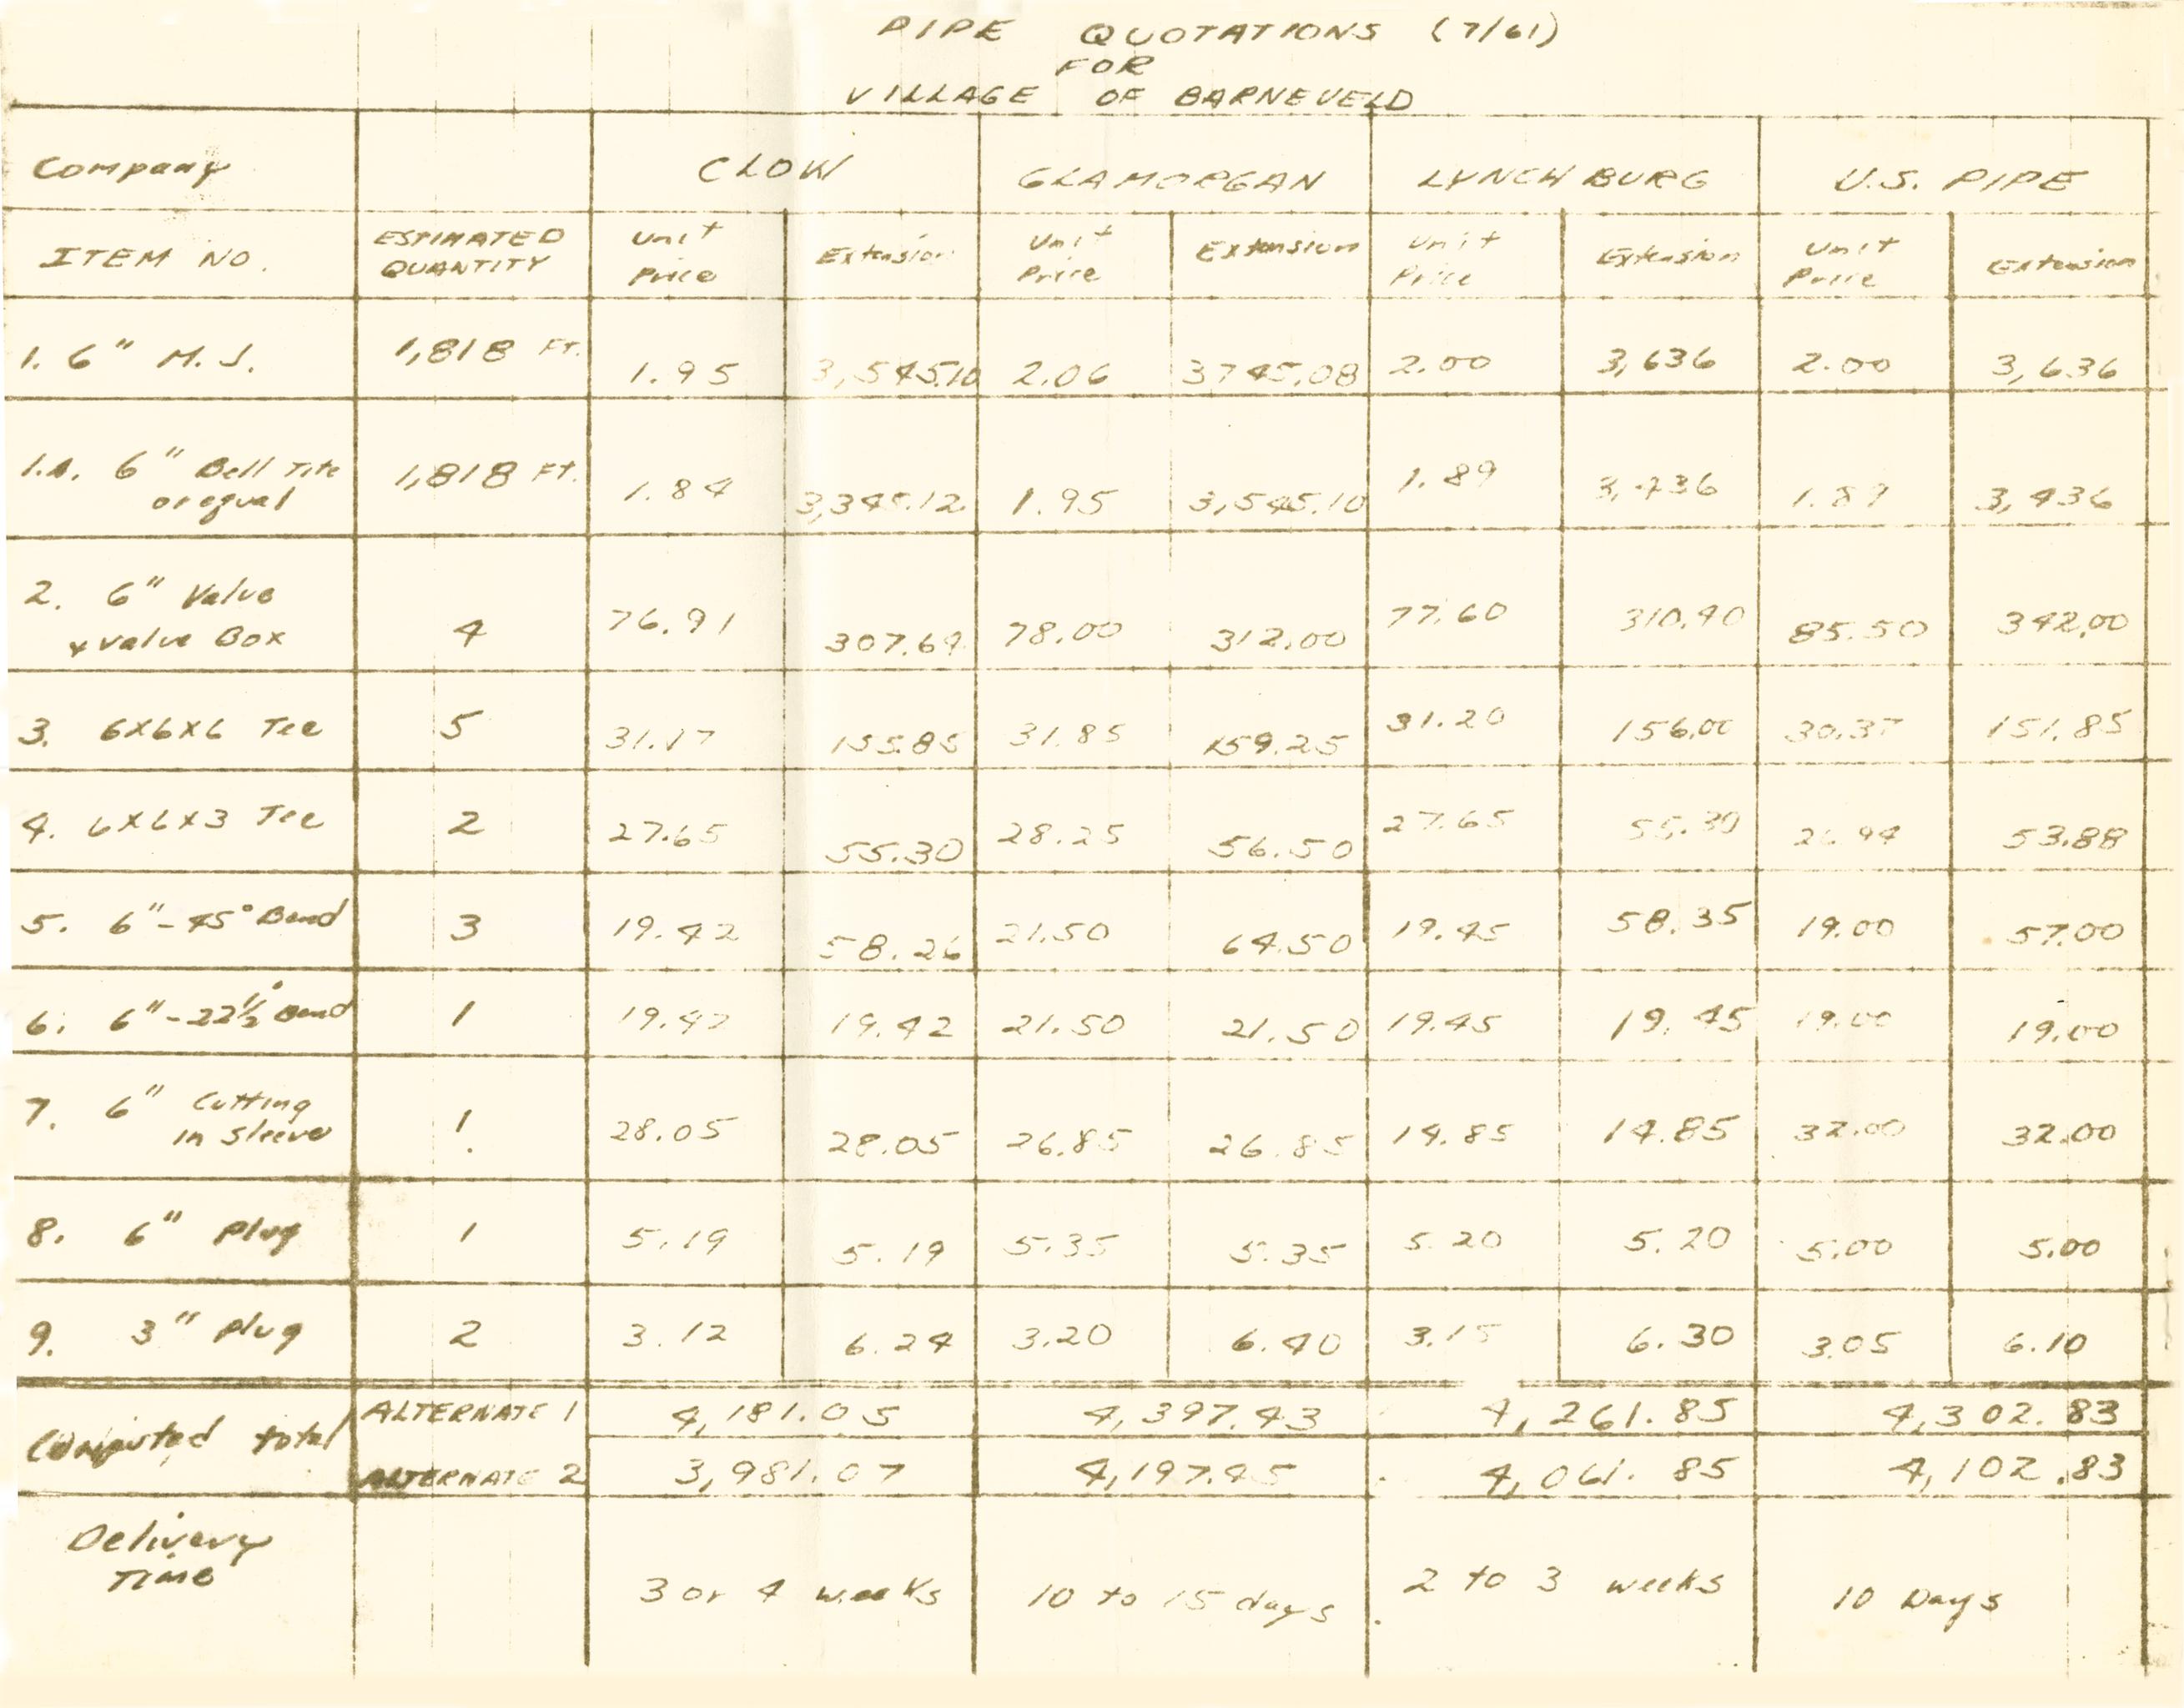 PIPE QUOTATIONS (7/61)
FOR
VILLAGE OF BARNEVELD
Company CLOW GLAMORGAN LYNCHBURG U.S. PIPE
ITEM NO. ESTIMATED QUANTITY Unit Price Extension Unit Price Extension Unit Price Extension Unit Price Extension
1. 6" M.J. 1,818 FT. 1.95 3,545.10 2.06 3745.08 2.00 3,636 2.00 3,636
1.A. 6" Bell Tite or equal 1,818 FT. 1.84 3,345.12 1.95 3,545.10 1.89 3,436 1.89 3,436
2. 6" Valve & valve Box 4 76.91 307.64 78.00 312.00 77.60 310.40 85.50 342.00
3. 6x6x6 Tee 5 31.17 155.85 31.85 159.25 31.20 156.00 30.37 151.85
4. 6x6x3 Tee 2 27.65 55.30 28.25 56.50 27.65 55.30 26.94 53.88
5. 6"-45° Bend 3 19.42 58.26 21.50 64.50 19.45 58.35 19.00 57.00
6. 6"-22½° Bend 1 19.42 19.42 21.50 21.50 19.45 19.45 19.00 19.00
7. 6" Cutting in Sleeve 1 28.05 28.05 26.85 26.85 14.85 14.85 32.00 32.00
8. 6" plug 1 5.19 5.19 5.35 5.35 5.20 5.20 5.00 5.00
9. 3" plug 2 3.12 6.24 3.20 6.40 3.15 6.30 3.05 6.10
Computed total ALTERNATE 1 4,181.05 4,397.43 4,261.85 4,302.83
ALTERNATE 2 3,981.07 4,197.45 4,061.85 4,102.83
Delivery Time 3 or 4 weeks 10 to 15 days 2 to 3 weeks 10 Days